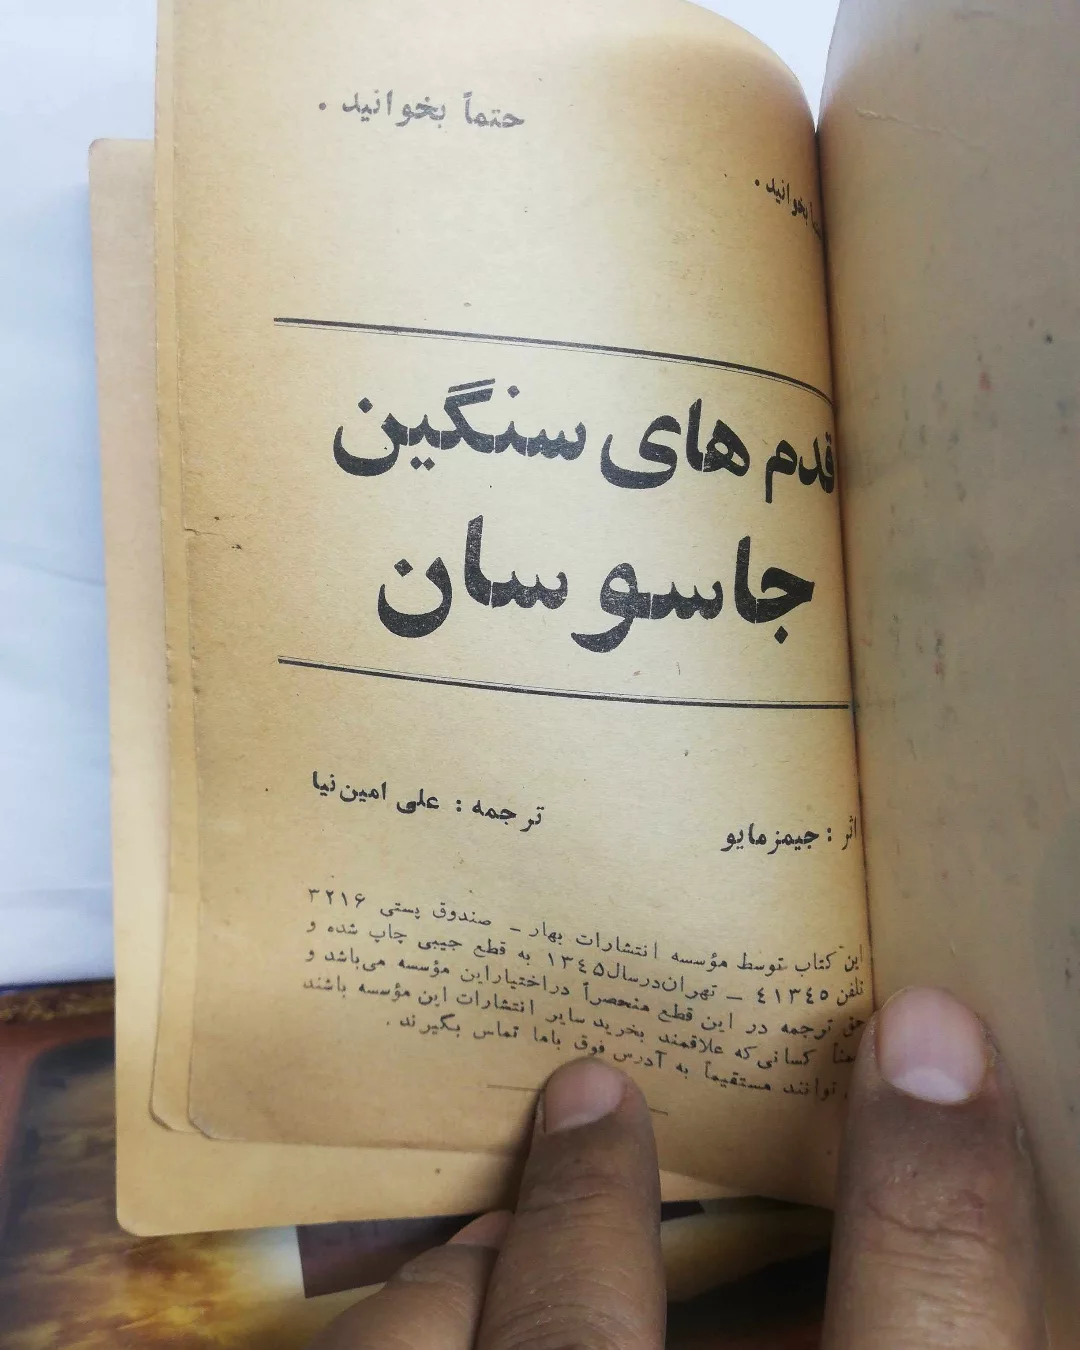 حتماً بخوانید .
بخوانید .
قدم های سنگین
جاسو سان
اثر : جیمز مایو
ترجمه : علی امین‌نیا
این کتاب توسط مؤسسه انتشارات بهار - صندوق پستی ۳۲۱۶
تلفن ٤١٣٤٥ — تهران‌درسال۱۳٤۵ به قطع جیبی چاپ شده و
حق ترجمه در این قطع منحصراً دراختیاراین مؤسسه می‌باشد و
کسانی‌که علاقمند بخرید سایر انتشارات این مؤسسه باشند
توانند مستقیماً به آدرس فوق باما تماس بگیرند .